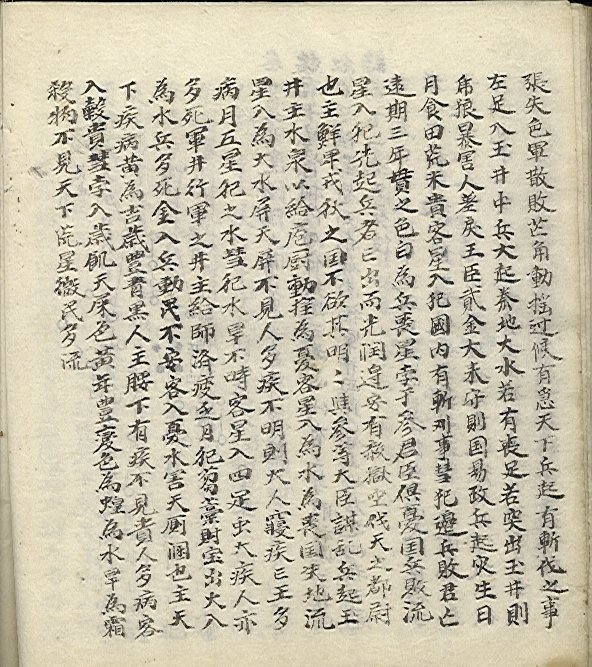 張失色軍散敗芒角動揺过候有急天下兵起有斬伐之事
左足入玉井中兵大起秦地大水若有喪足若突出玉井則
甪狼暴害人差戾王臣貳金火來守則国易政兵起灾生日
月食田荒米貴客星入犯國内有斬刈事彗犯邊兵敗君亡
遠期三年賁之色白為兵喪星孛于参君臣俱憂国兵敗流
星入犯先起兵者亡出而光润邊安有赦獄坐伐天之都尉
也主鮮卑戎狄之国不欲其明〻與参等大臣謀乱兵起玉
井主水泉以給庖厨動揺為憂客星入為水為喪国失地流
星入為大水屏天屏不見人多疾不明則大人寢疾亡主多
病月五星犯之水彗犯水旱不時客星入四足虫大疾人亦
多死軍井行軍之井主給師済疲乏月犯芻藁財宝出大人
為水兵多死金入兵動民不安客入憂水害天厠溷也主天
下疾病黄為吉歳豊青黒人主腰下有疾不見貴人多病客
入穀貴彗孛入歳飢天屎色黄年豊変色為蝗為水旱為霜
殺物不見天下荒星微民多流